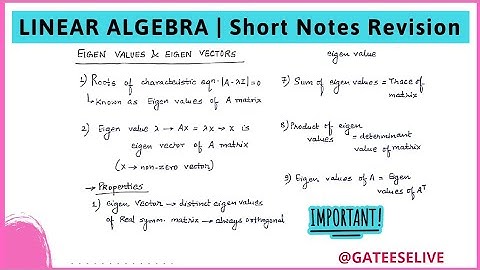 LINEAR ALGEBRA | Short Notes Revision
EIGEN VALUES & EIGEN VECTORS
1) Roots of characteristic eqn - |A-λI|=0
↳ Known as Eigen values of A matrix
2) Eigen value λ → Ax = λx → x is
eigen vector of A matrix
(x → non-zero vector)
→ Properties
1) eigen vector → distinct eigen values
of Real symm. matrix → always orthogonal
eigen value
7) Sum of eigen values = Trace of
matrix
8) Product of eigen
values = determinant
value of matrix
9) Eigen values of A = Eigen
values of Aᵀ
IMPORTANT!
@GATEESELIVE